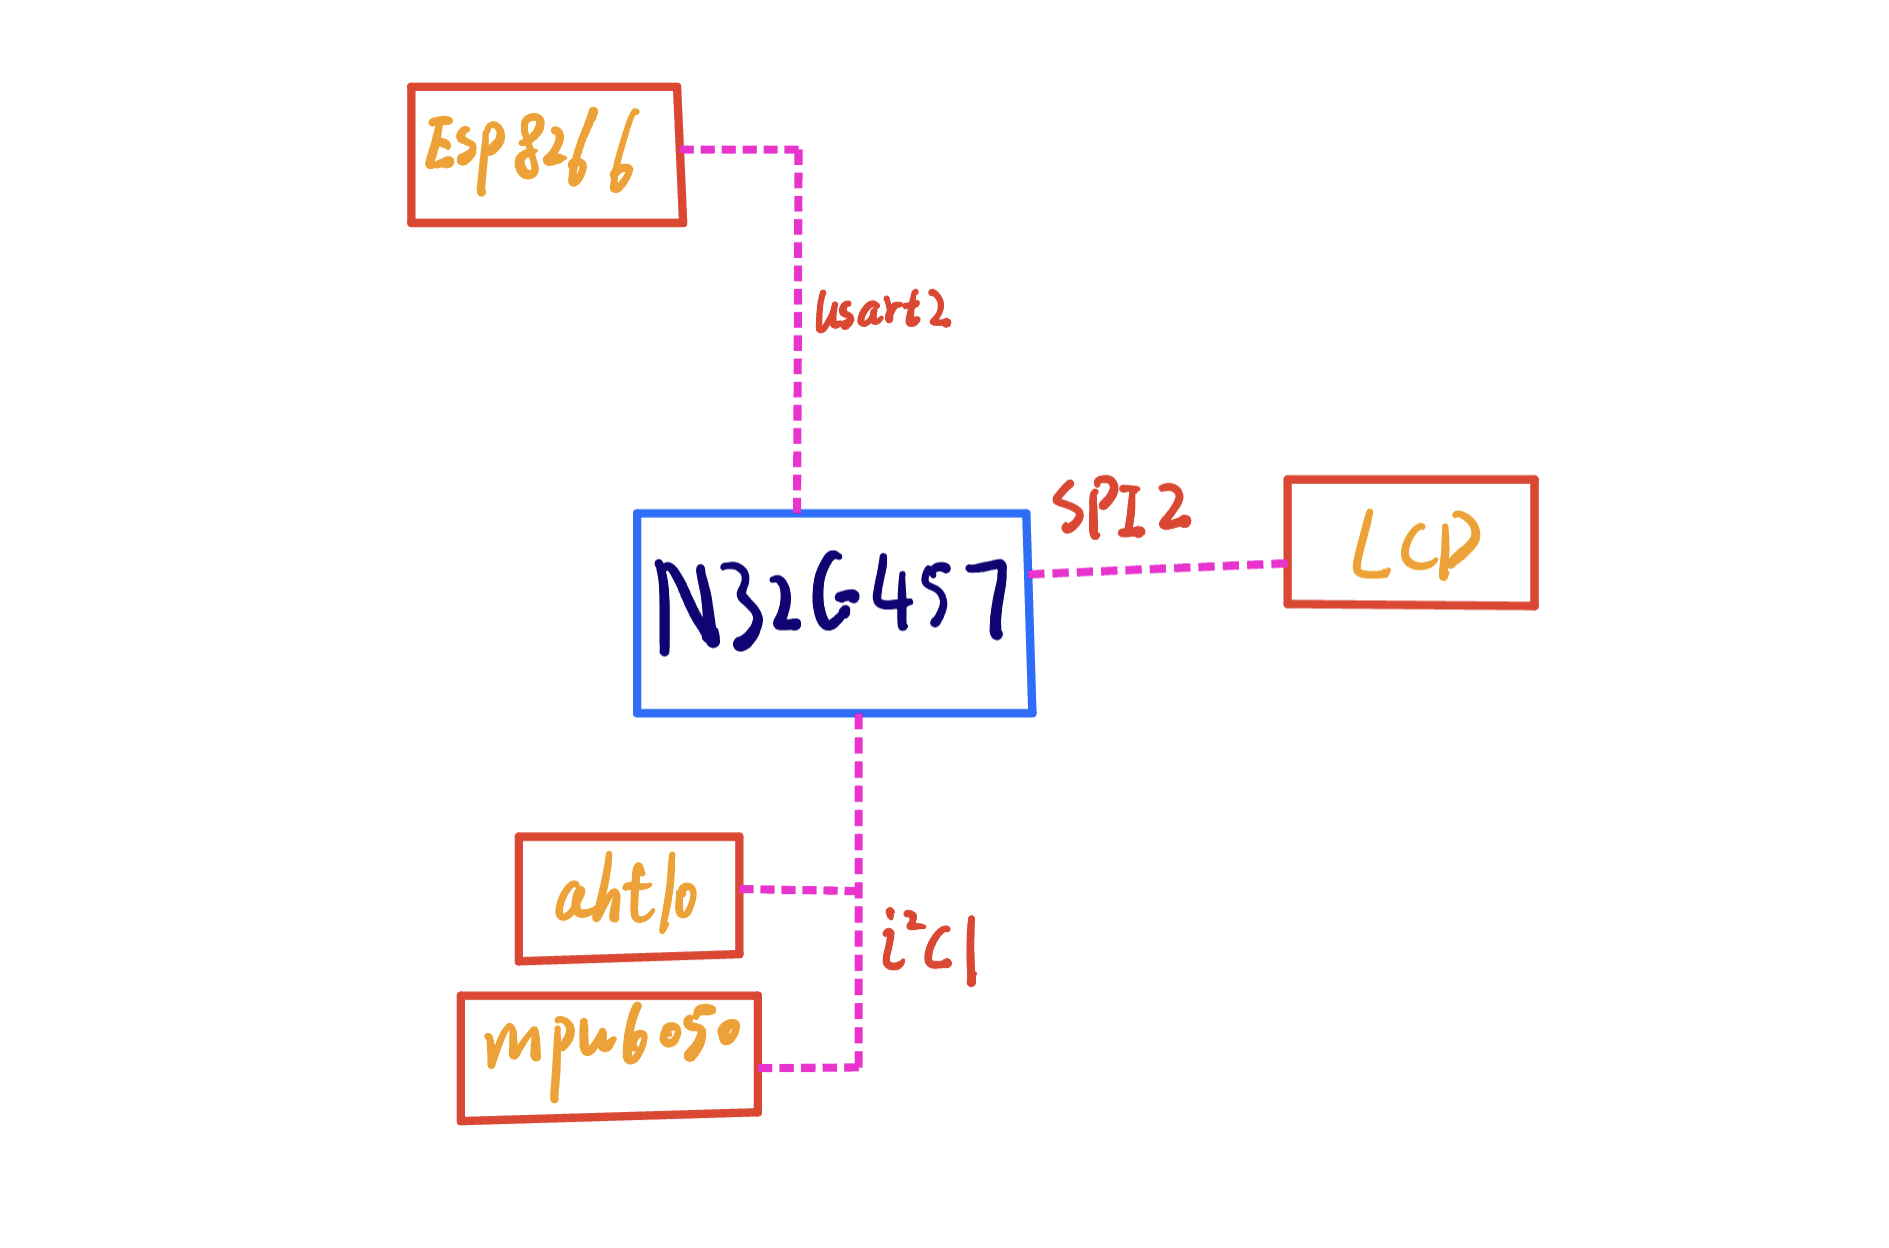 Esp8266
usart2
SPI2
LCD
N32G457
aht10
i²C1
mpu6050